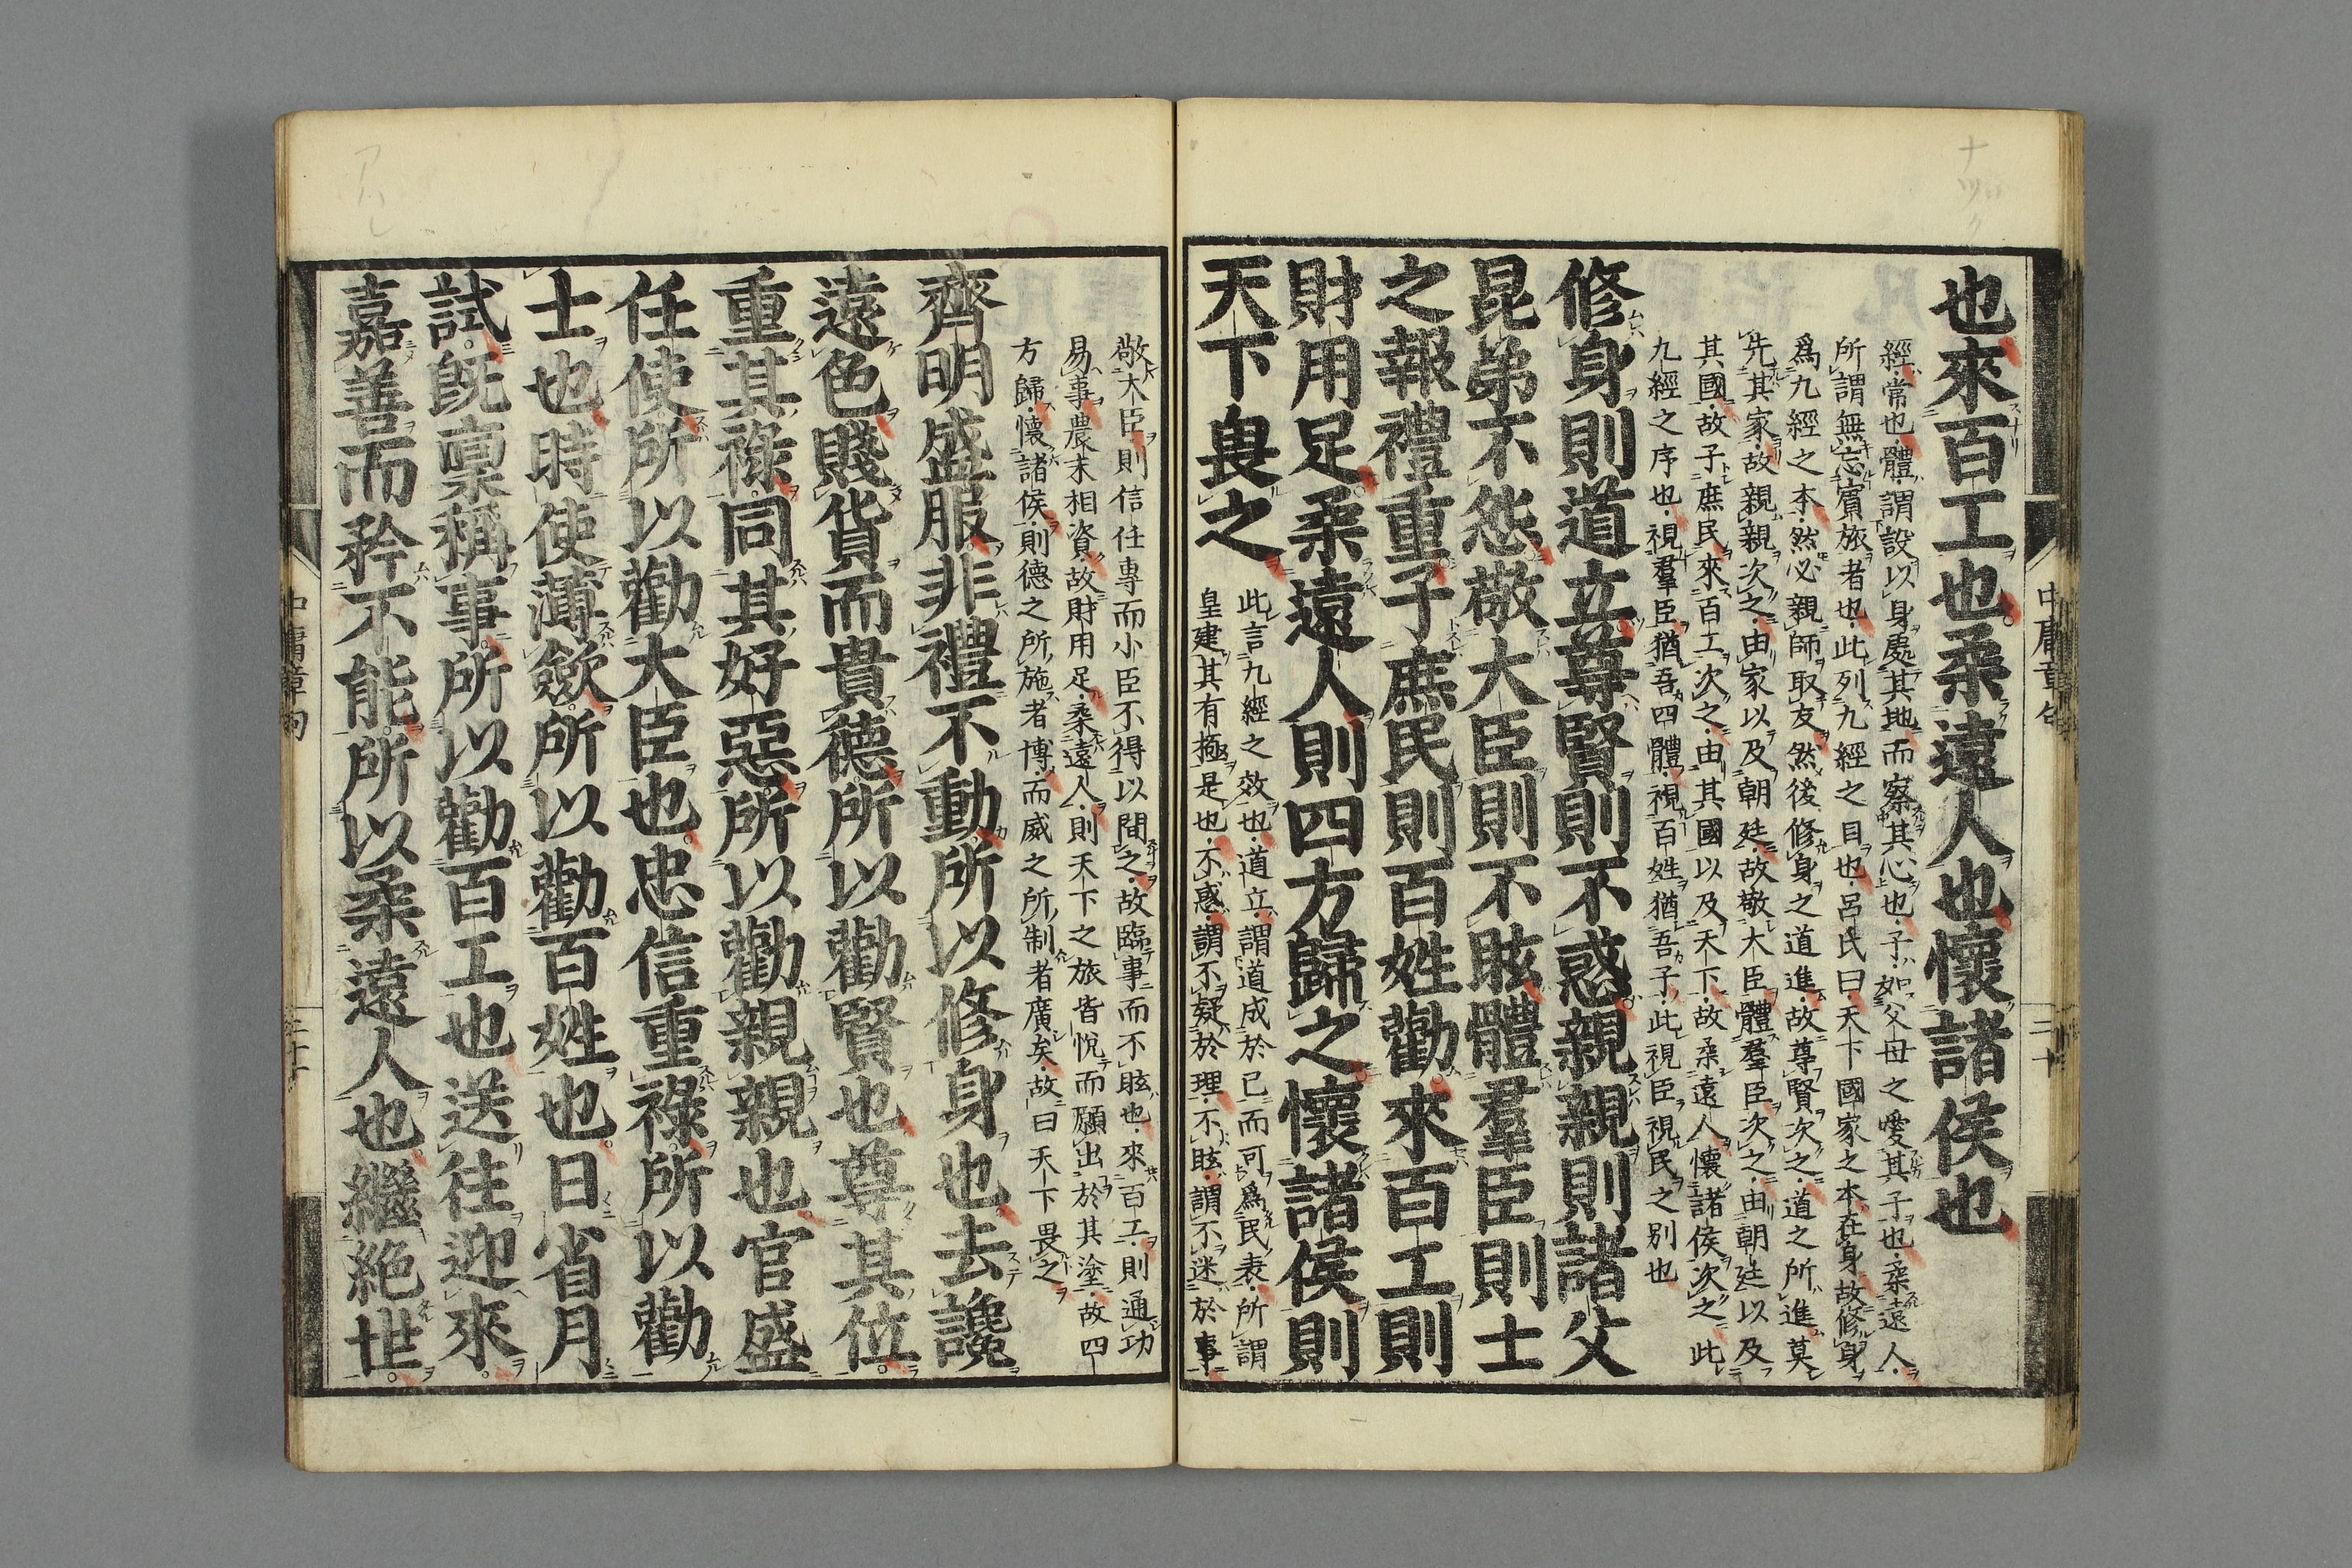 也來百工也柔遠人也懷諸侯也
經常也體謂設以身處其地而察其心也子如父母之愛其子也柔遠人
所謂無忘賓旅者也此列九經之目也呂氏曰天下國家之本在身故修身
爲九經之本然必親師取友然後修身之道進故尊賢次之道之所進莫
先其家故親親次之由家以及朝廷故敬大臣體羣臣次之由朝廷以及
其國故子庶民來百工次之由其國以及天下故柔遠人懷諸侯次之此
九經之序也視羣臣猶吾四體視百姓猶吾子此視臣視民之別也
修身則道立尊賢則不惑親親則諸父
昆弟不怨敬大臣則不眩體羣臣則士
之報禮重子庶民則百姓勸來百工則
財用足柔遠人則四方歸之懷諸侯則
天下畏之
此言九經之效也道立謂道成於己而可爲民表所謂
皇建其有極是也不惑謂不疑於理不眩謂不迷於事
敬大臣則信任專而小臣不得以間之故臨事而不眩也來百工則通功
易事農末相資故財用足柔遠人則天下之旅皆悅而願出於其塗故四
方歸懷諸侯則德之所施者博而威之所制者廣矣故曰天下畏之
齊明盛服非禮不動所以修身也去讒
遠色賤貨而貴德所以勸賢也尊其位
重其祿同其好惡所以勸親親也官盛
任使所以勸大臣也忠信重祿所以勸
士也時使薄斂所以勸百姓也日省月
試既稟稱事所以勸百工也送往迎來
嘉善而矜不能所以柔遠人也繼絶世
中庸章句